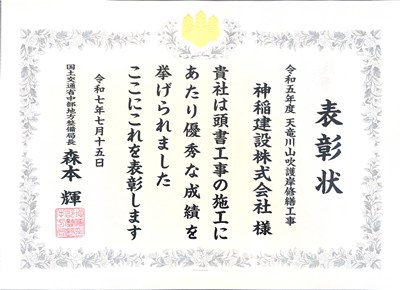 表彰状
令和五年度 天竜川山吹護岸修繕工事
神稲建設株式会社 様
貴社は頭書工事の施工に
あたり優秀な成績を
挙げられました
ここにこれを表彰します
令和七年七月十五日
国土交通省中部地方整備局長 森本 輝